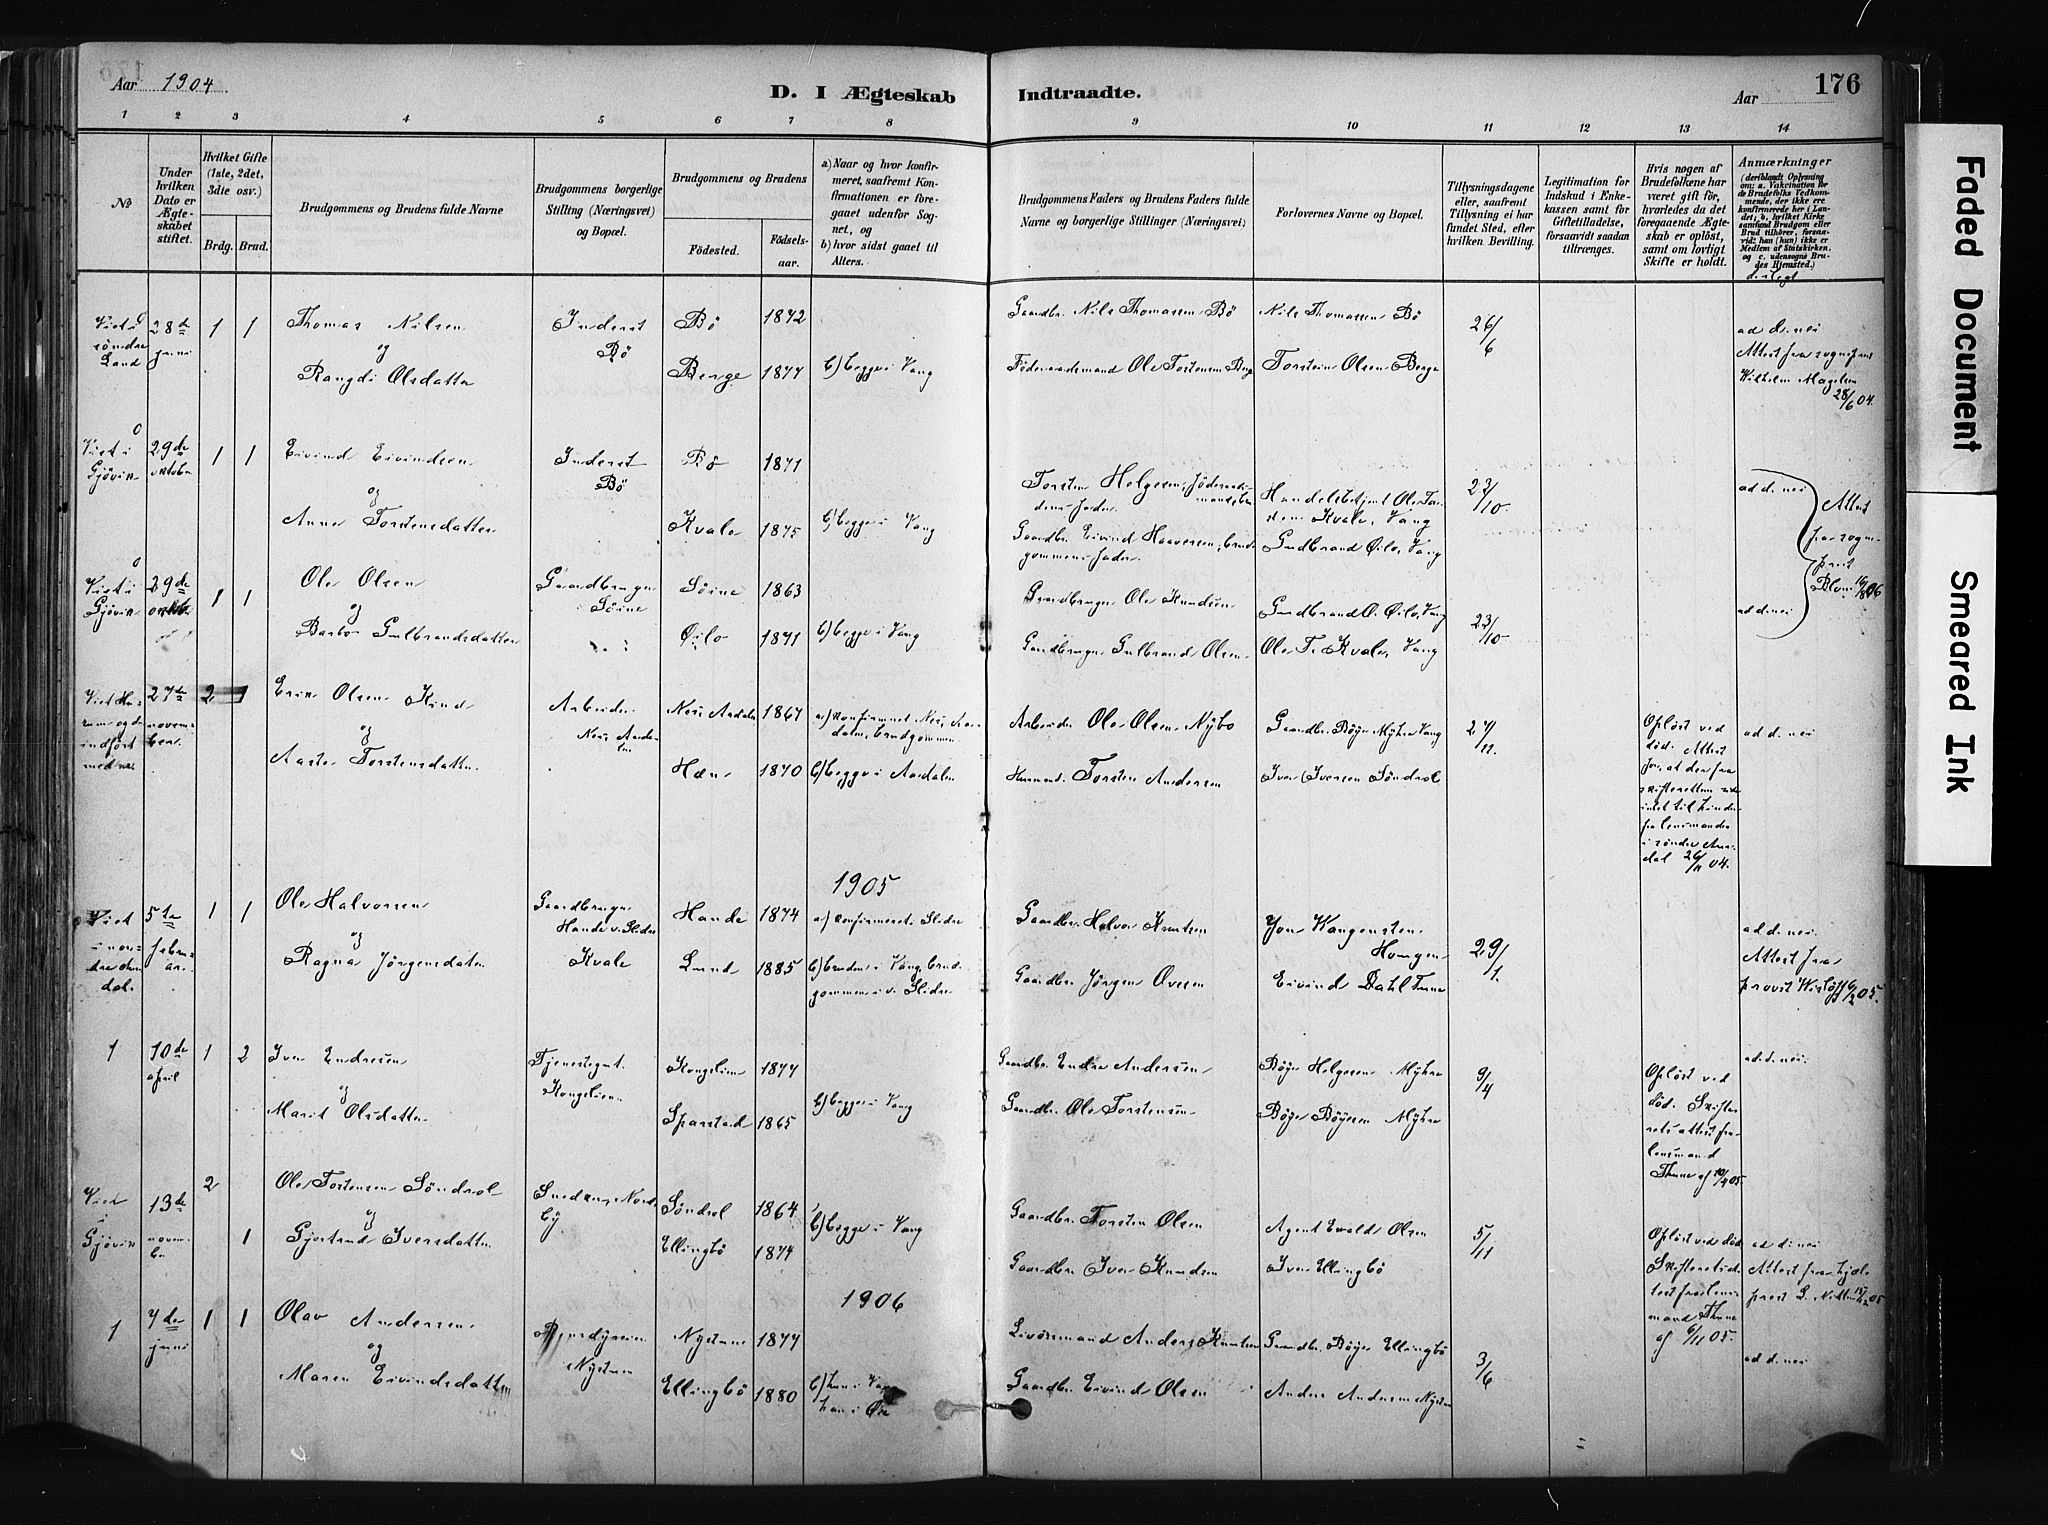 Aar 1904.
D. I Ægteskab Indtraadte.
Aar
176
1 2 3 4 5 6 7 8 9 10 11 12 13 14
No
Under hvilken Dato er Ægteskabet stiftet.
Hvilket Gifte (1ste, 2det, 3die osv.)
Brdg. Brud.
Brudgommens og Brudens fulde Navne
Brudgommens borgerlige Stilling (Næringsvei) og Bopæl.
Brudgommens og Brudens
Fødested.
Fødselsaar.
a) Naar og hvor konfirmeret, saafremt Konfirmationen er foregaaet udenfor Sognet, og
b) hvor sidst gaaet til Alters.
Brudgommens Faders og Brudens Faders fulde Navne og borgerlige Stillinger (Næringsvei)
Forlovernes Navne og Bopæl.
Tillysningsdagene eller, saafremt Tillysning ei har fundet Sted, efter hvilken Bevilling.
Legitimation for Indskud i Enkekassen samt for Giftetilladelse, forsaavidt saadan tiltrænges.
Hvis nogen af Brudefolkene har været gift før, hvorledes da det foregaaende Ægteskab er opløst, samt om lovligt Skifte er holdt.
Anmærkninger
(deriblandt Oplysning om: a. Vakcination for de Brudefolks Vedkommende, der ikke ere konfirmerede her i Landet; b. hvilket Kirkesamfund Brudgom eller Brud tilhører, forsaavidt han (hun) ikke er Medlem af Statskirken, og c. udensogns Brudes Hjemsted.)
Viet i søndre Land
28de juni
1 1
Thomas Nilsen
og
Rangdi Olsdatter
Inderst
Bø
Bø 1872
Berge 1877
b) begge i Vang
Gaardbr. Nils Thomassen Bø
Føderaadsmand Ole Torstensen Berg
Nils Thomassen Bø
Torstein Olsen Berge
26/6
ad d. nei
Attest fra sogneprest
Wilhelm Magelsen
28/6 04.
Viet i Gjøvik
29de oktober
1 1
Eivind Eivindsen
og
Anne Torstensdatter
Inderst
Bø
Bø 1871
Kvale 1875
b) begge i Vang
Torsten Helgesen, føderaadsmand, brudens fader.
Gaardbr. Eivind Haavorsen, brudgommens fader.
Handelsbetjent Ole Torsten Kvale, Vang
Gudbrand Øilo, Vang
23/10
ad d. nei
Attest fra sogneprest
Viet i Gjøvik
29de oktbr.
1 1
Ole Olsen
og
Barbo Gulbrandsdatter
Gaardbruger
i Søine
Søine 1863
Øilo 1871
b) begge i Vang
Gaardbruger Ole Knudsen
Gaardbruger Gulbrand Olsen
Gudbrand O. Øilo, Vang
Ole T. Kvale, Vang
23/10
ad d. nei
27de november
2 1
Erik Olsen Kind
og
Aaste Torstensdatter
Arbeider
Nori Aurdalen
Nori Aurdalen 1867
Hæn 1870
a) konfirmeret Nori Aurdalen, brudgommen
b) begge i Aurdalen
Arbeider Ole Olsen Nybo
Husmand Torsten Andersen
Gaardbr. Bøye Myhre Vang
Iver Iversen Søndrol
27/11.
Opløst ved død. Attest
for, at der fra skifteretten
intet til hinder
fra lensmanden i søndre Aurdal 26/11 04.
ad d. nei
1905
Viet i nordre Aurdal.
5te februar.
1 1
Ole Halvorsen
og
Ragna Jørgensdatter
Gaardbruger
Hande v. Slidre
Kvale
Hande 1874
Lund 1885
a) konfirmeret i Slidre
b) bruden i Vang, brudgommen i v. Slidre
Gaardbr. Halvor Knutsen
Gaardbr. Jørgen Ovesen
Eivind Dahl Tune
29/1.
ad d. nei.
Attest fra
provst Wisløff 6/2 05.
1
10de april
1 2
Iver Endresen
og
Marit Olsdatter
Tjenestegut.
Kongslien
Kongslien 1877
Sparstad 1865
b) begge i Vang
Gaardbr. Endre Andersen
Gaardbr. Ole Torstensen
Bøye Helgesen Myhre
Bøye Bøyesen Myhre
9/4
Opløst ved død. Skifteretsattest fra lensmand
Thune af 10/4 05.
ad d. nei
Viet i Gjøvik
13de november
2 1
Ole Torstensen Søndrol
og
Gjertrud Iversdatter
Snedker, Nordby.
Søndrol 1864
Ellingbø 1874
b) begge i Vang
Gaardbr. Torsten Olsen
Gaardbr. Iver Knudsen
Agent Ewald Olsen
Iver Ellingbø
5/11
Opløst ved død
Skifteretsattest fra lensmand Thune
af 6/11 05.
ad d. nei
1906
1
7de juni
1 1
Olav Andersen
og
Maren Eivindsdatter
Nystuen
Nystuen 1877
Ellingbø 1880
b) hun i Vang
han i Øie
Anders Knutsen
Gaardbr. Eivind Olsen
Gaardbr. Bøye Ellingbø
Anders Andersen Nystuen
3/6
ad d. nei
Faded Document
Smeared Ink